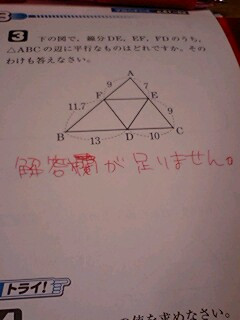 3 下の図で，線分DE，EF，FDのうち，
△ABCの辺に平行なものはどれですか。その
わけも答えなさい。
A
9 7
F E
11.7 9
B D C
13 10
解答欄が足りません。
トライ!
の値を求めなさい。